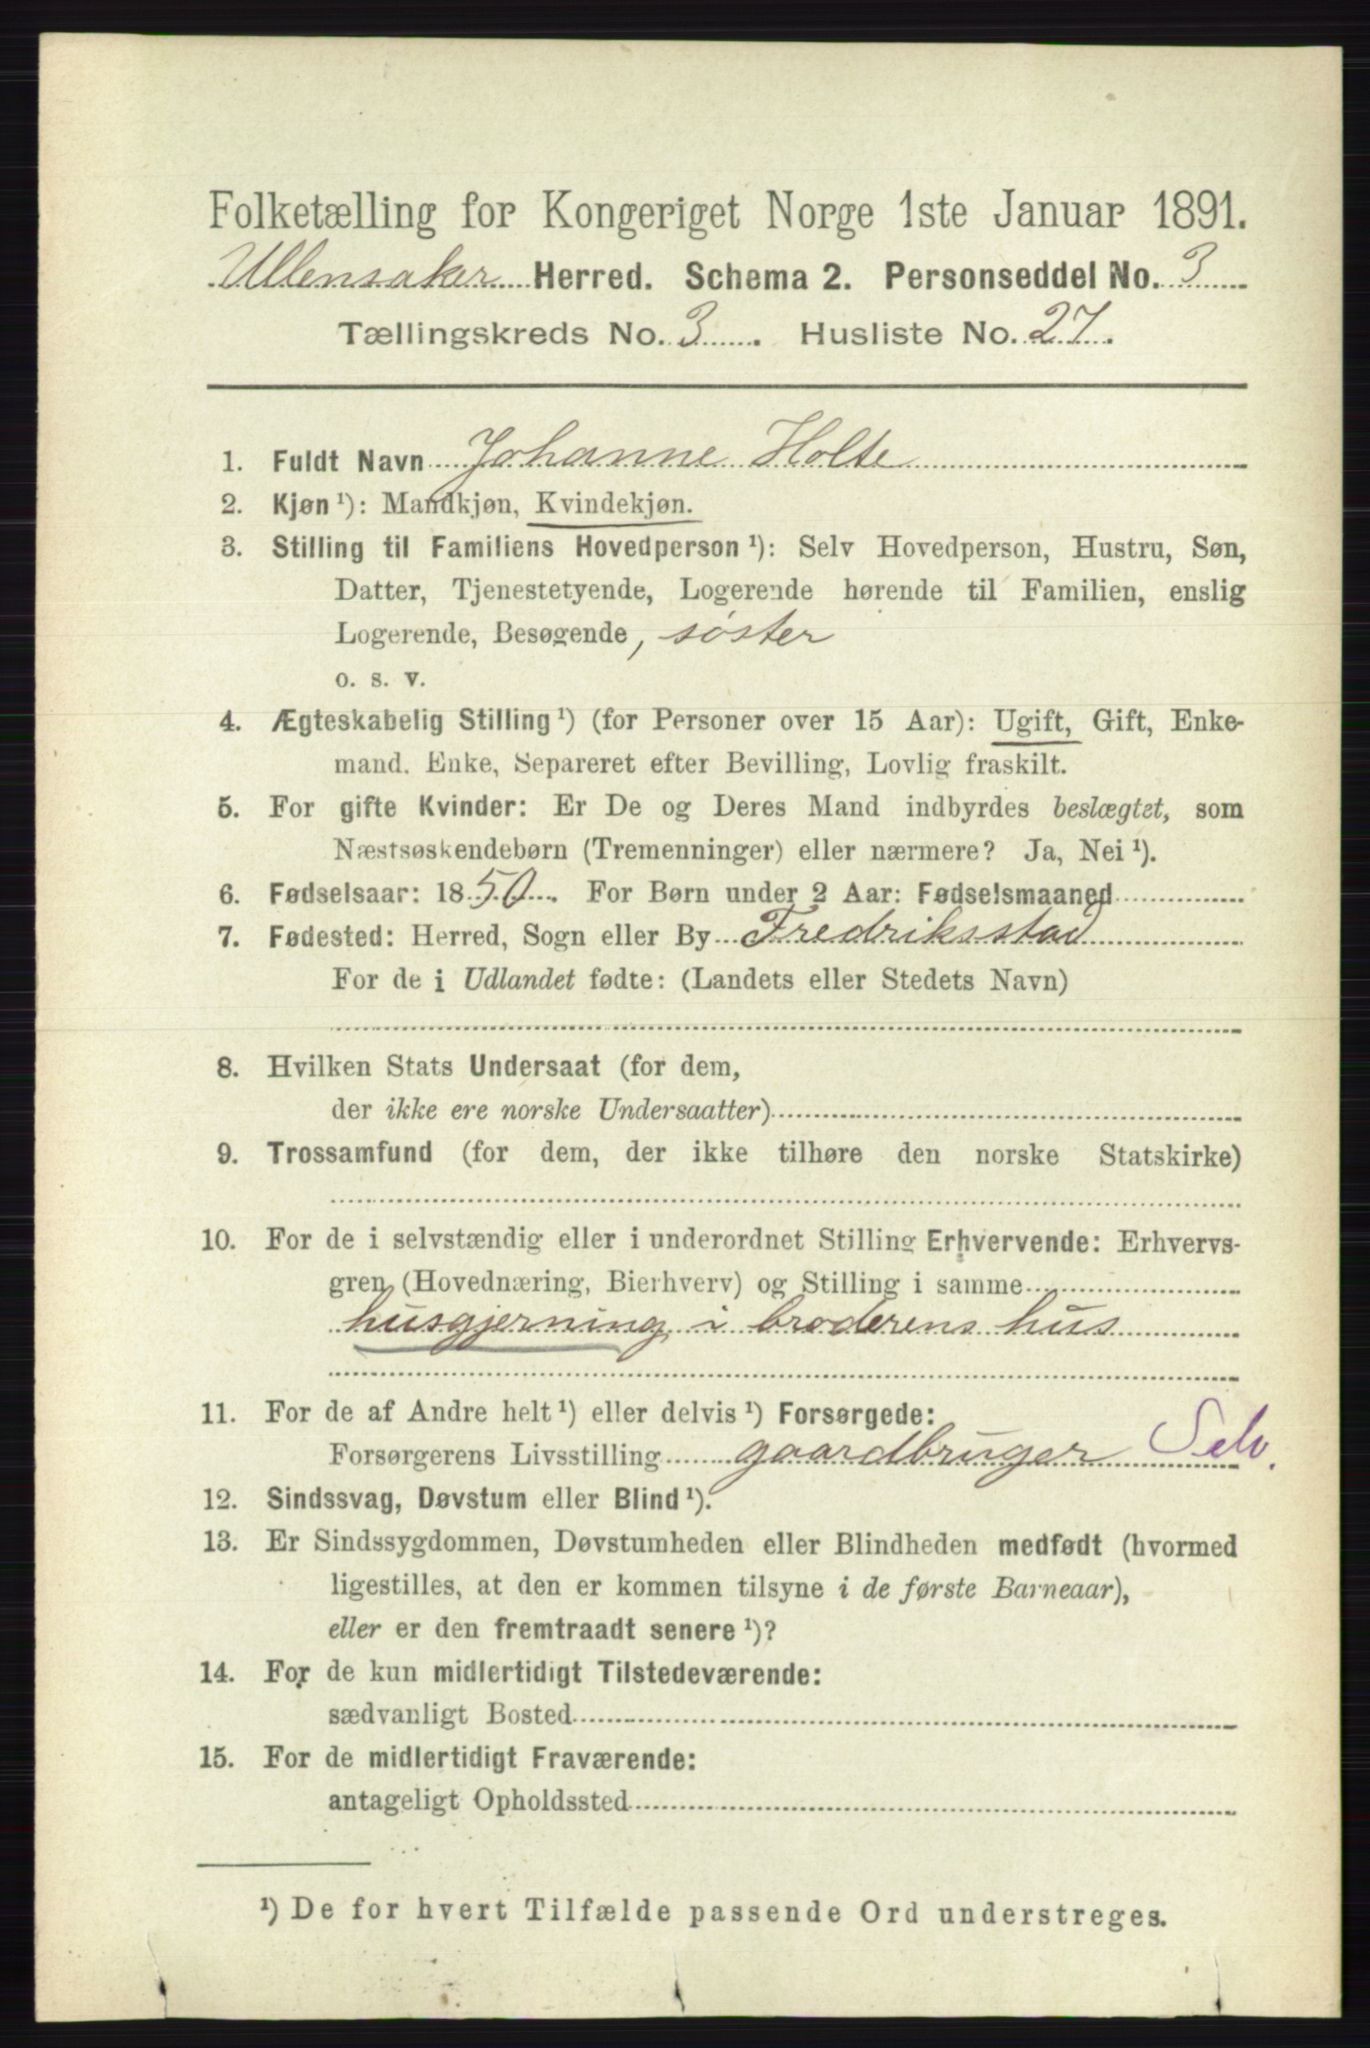 Folketælling for Kongeriget Norge 1ste Januar 1891.
Ullensaker Herred. Schema 2. Personseddel No. 3
Tællingskreds No. 3. Husliste No. 27.
1. Fuldt Navn Johanne Holte
2. Kjøn ¹): Mandkjøn, Kvindekjøn.
3. Stilling til Familiens Hovedperson ¹): Selv Hovedperson, Hustru, Søn,
Datter, Tjenestetyende, Logerende hørende til Familien, enslig
Logerende, Besøgende, søster
o. s. v.
4. Ægteskabelig Stilling ¹) (for Personer over 15 Aar): Ugift, Gift, Enke-
mand. Enke, Separeret efter Bevilling, Lovlig fraskilt.
5. For gifte Kvinder: Er De og Deres Mand indbyrdes beslægtet, som
Næstsøskendebørn (Tremenninger) eller nærmere? Ja, Nei ¹).
6. Fødselsaar: 1850. For Børn under 2 Aar: Fødselsmaaned
7. Fødested: Herred, Sogn eller By Fredriksstad
For de i Udlandet fødte: (Landets eller Stedets Navn)
8. Hvilken Stats Undersaat (for dem,
der ikke ere norske Undersaatter)
9. Trossamfund (for dem, der ikke tilhøre den norske Statskirke)
10. For de i selvstændig eller i underordnet Stilling Erhvervende: Erhvervs-
gren (Hovednæring, Bierhverv) og Stilling i samme
husgjerning i broderens hus
11. For de af Andre helt ¹) eller delvis ¹) Forsørgede:
Forsørgerens Livsstilling gaardbruger Selv.
12. Sindssvag, Døvstum eller Blind ¹).
13. Er Sindssygdommen, Døvstumheden eller Blindheden medfødt (hvormed
ligestilles, at den er kommen tilsyne i de første Barneaar),
eller er den fremtraadt senere ¹)?
14. For de kun midlertidigt Tilstedeværende:
sædvanligt Bosted
15. For de midlertidigt Fraværende:
antageligt Opholdssted
¹) De for hvert Tilfælde passende Ord understreges.